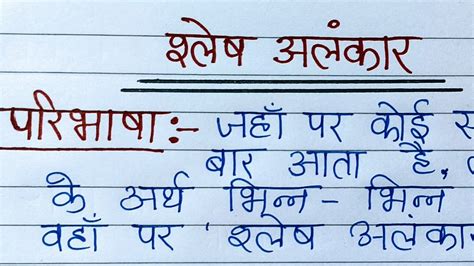 श्लेष अलंकार
परिभाषा:- जहाँ पर कोई
बार आता है,
के अर्थ भिन्न - भिन्न
वहाँ पर 'श्लेष अलंकार